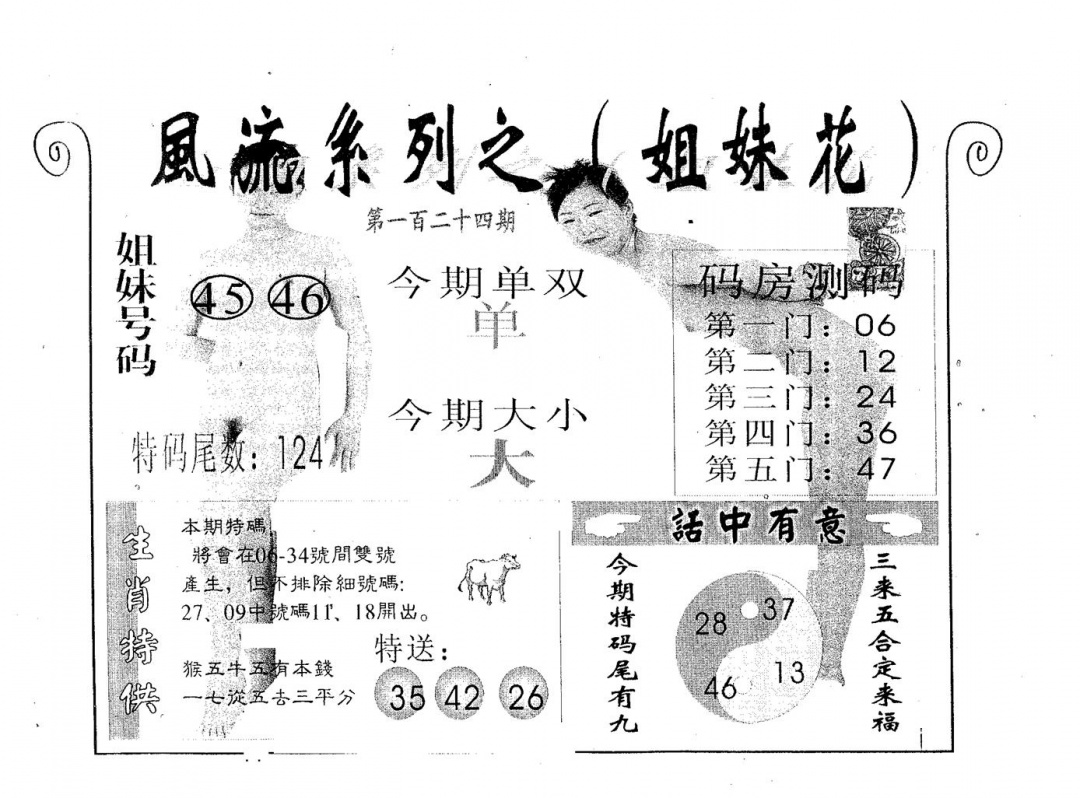 風流系列之（姐妹花）
第一百二十四期
姐妹号码
45 46
今期单双
单
今期大小
大
特码尾数：124
码房测码
第一门：06
第二门：12
第三门：24
第四门：36
第五门：47
生肖特供
本期特碼，
將會在06-34號間雙號
產生，但不排除細號碼:
27、09中號碼11、18開出。
猴五牛五有本錢
一七從五去三平分
特送：
35 42 26
話中有意
今期特码尾有九
28 37
46 13
三来五合定来福